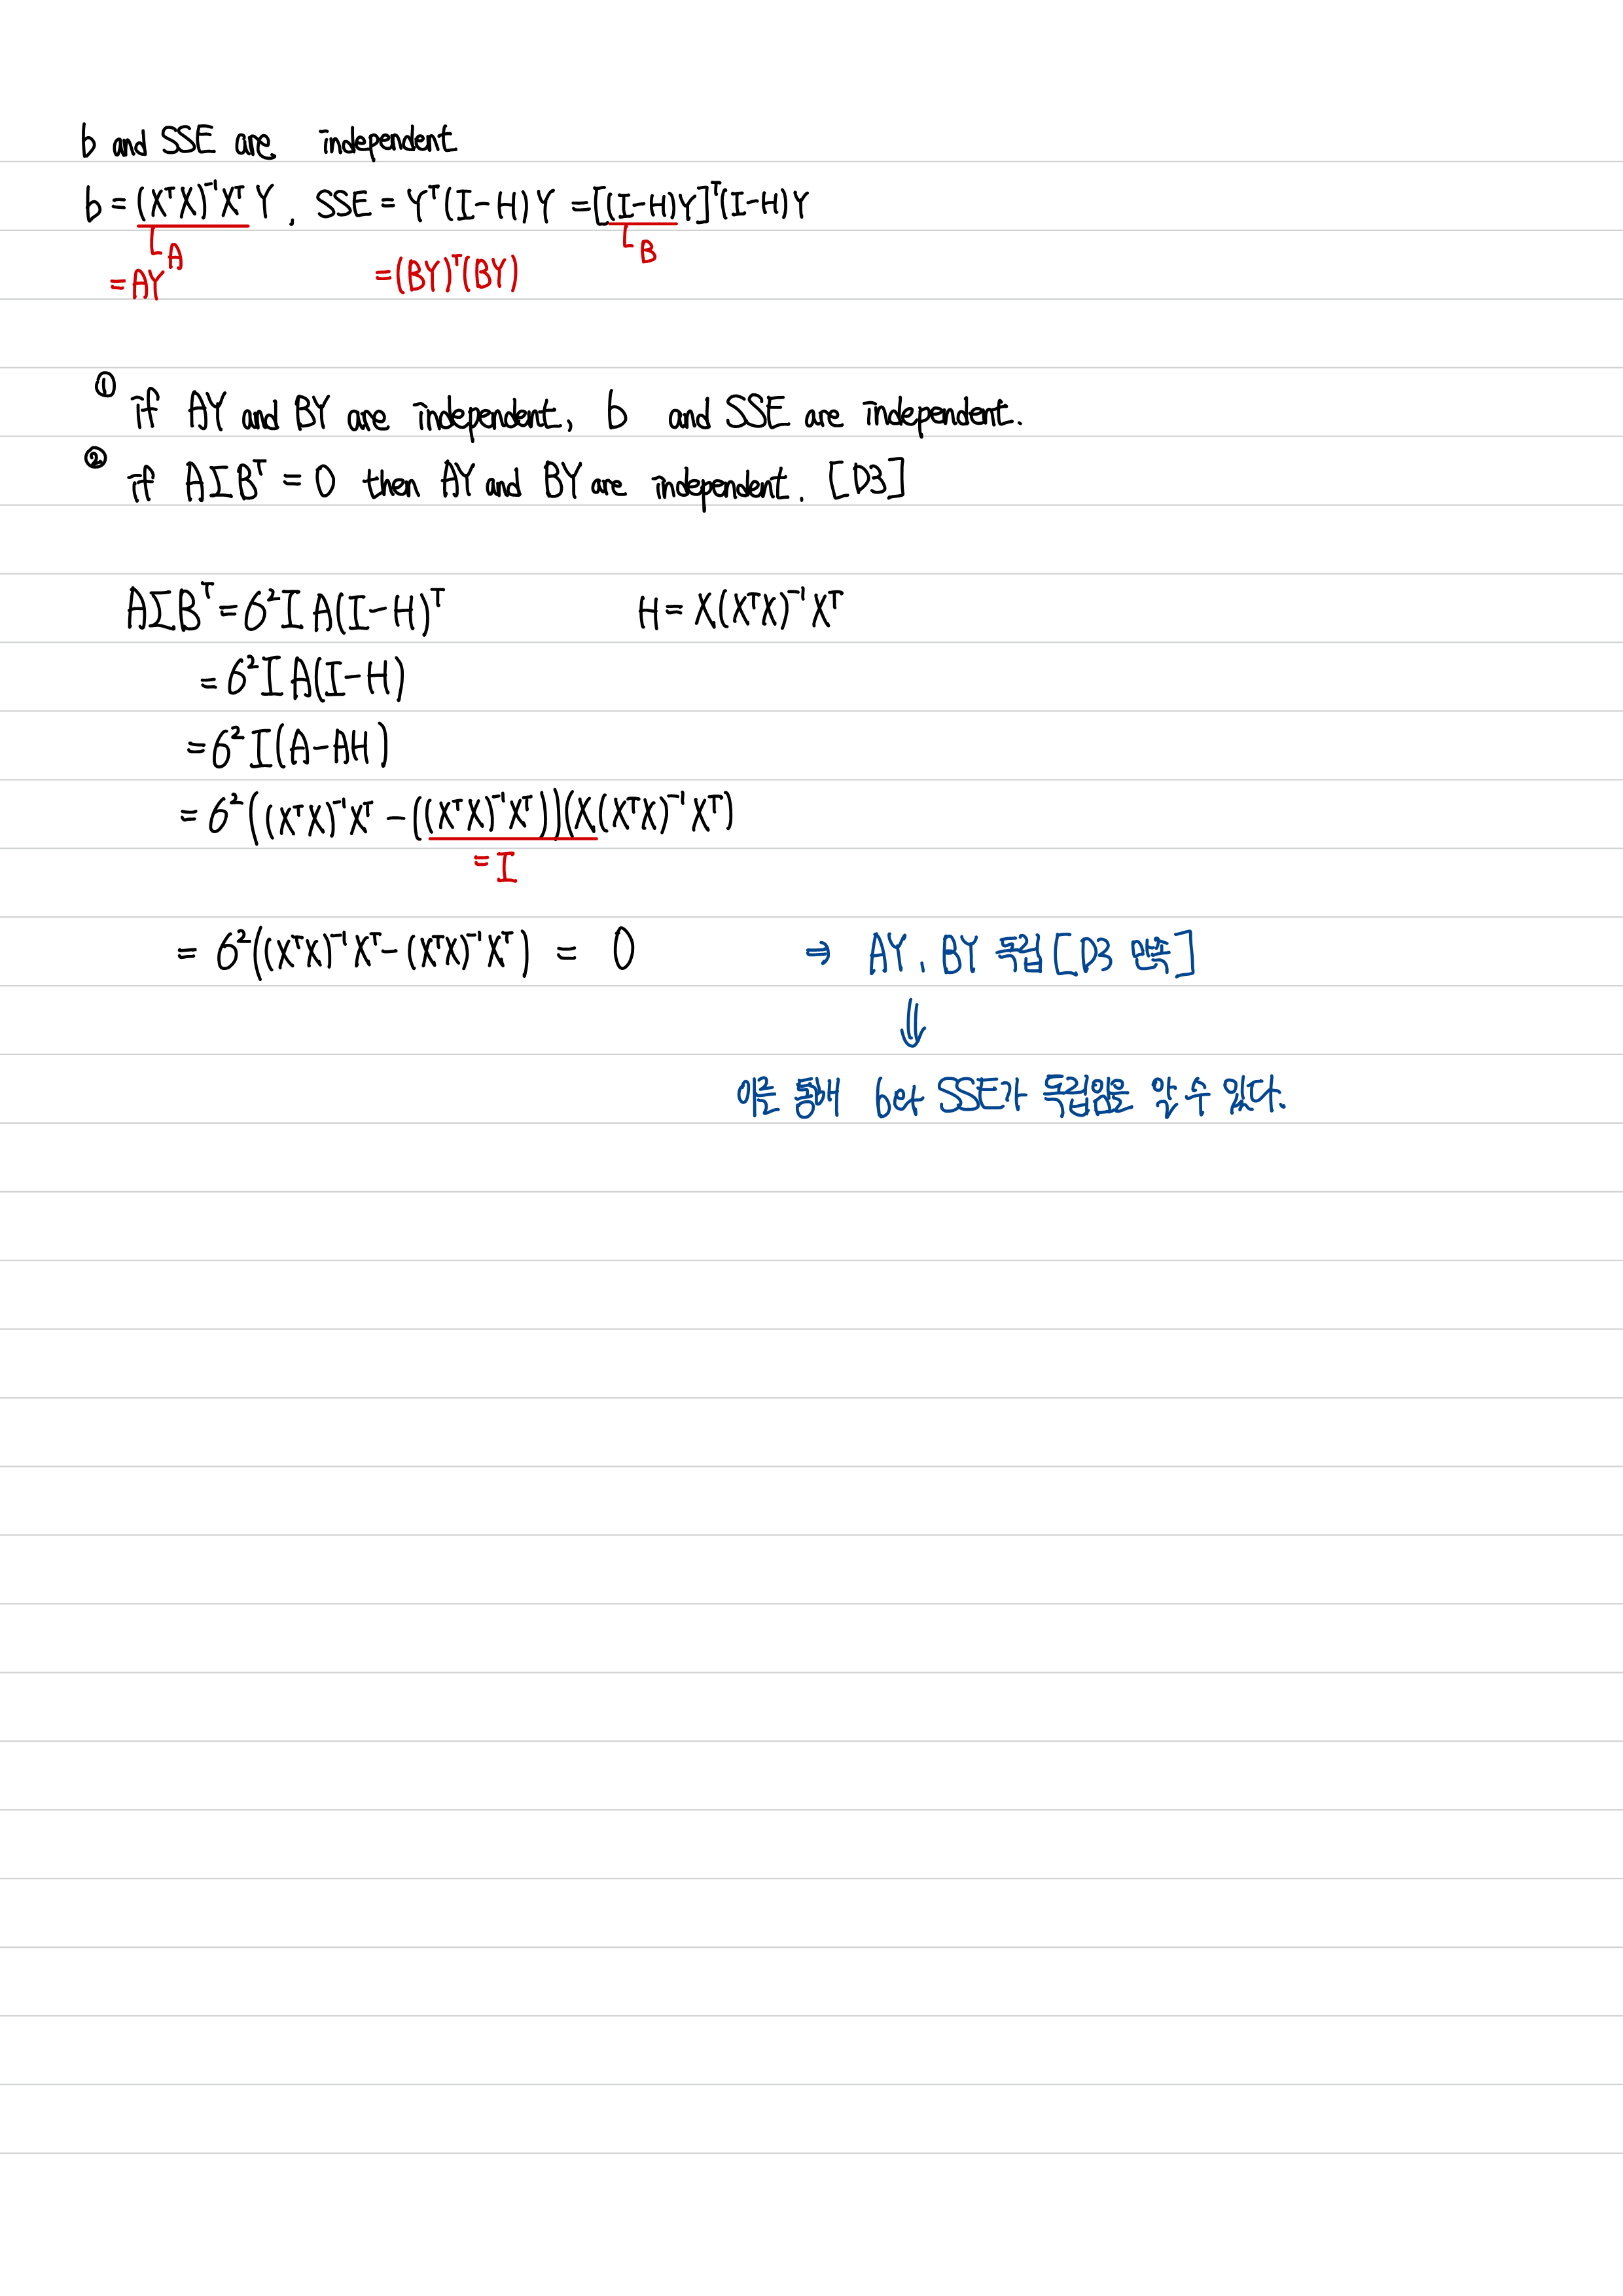 b and SSE are independent
b = (XᵀX)⁻¹XᵀY , SSE = Yᵀ(I-H)Y = [(I-H)Y]ᵀ(I-H)Y
A
B
= AY
= (BY)ᵀ(BY)
① if AY and BY are independent, b and SSE are independent.
② if AIBᵀ = 0 then AY and BY are independent. [D3]
AΣBᵀ = 6²I A(I-H)ᵀ H = X(XᵀX)⁻¹Xᵀ
= 6²I A(I-H)
= 6²I(A-AH)
= 6²((XᵀX)⁻¹Xᵀ - ((XᵀX)⁻¹Xᵀ))(X(XᵀX)⁻¹Xᵀ)
= I
= 6²((XᵀX)⁻¹Xᵀ - (XᵀX)⁻¹Xᵀ) = 0 ⇒ AY, BY 독립 [D3 만족]
⇓
이를 통해 b와 SSE가 독립임을 알 수 있다.